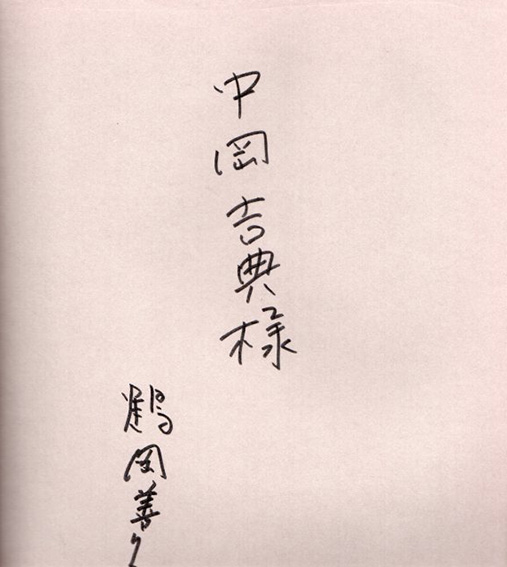 中岡吉典様
鶴岡善